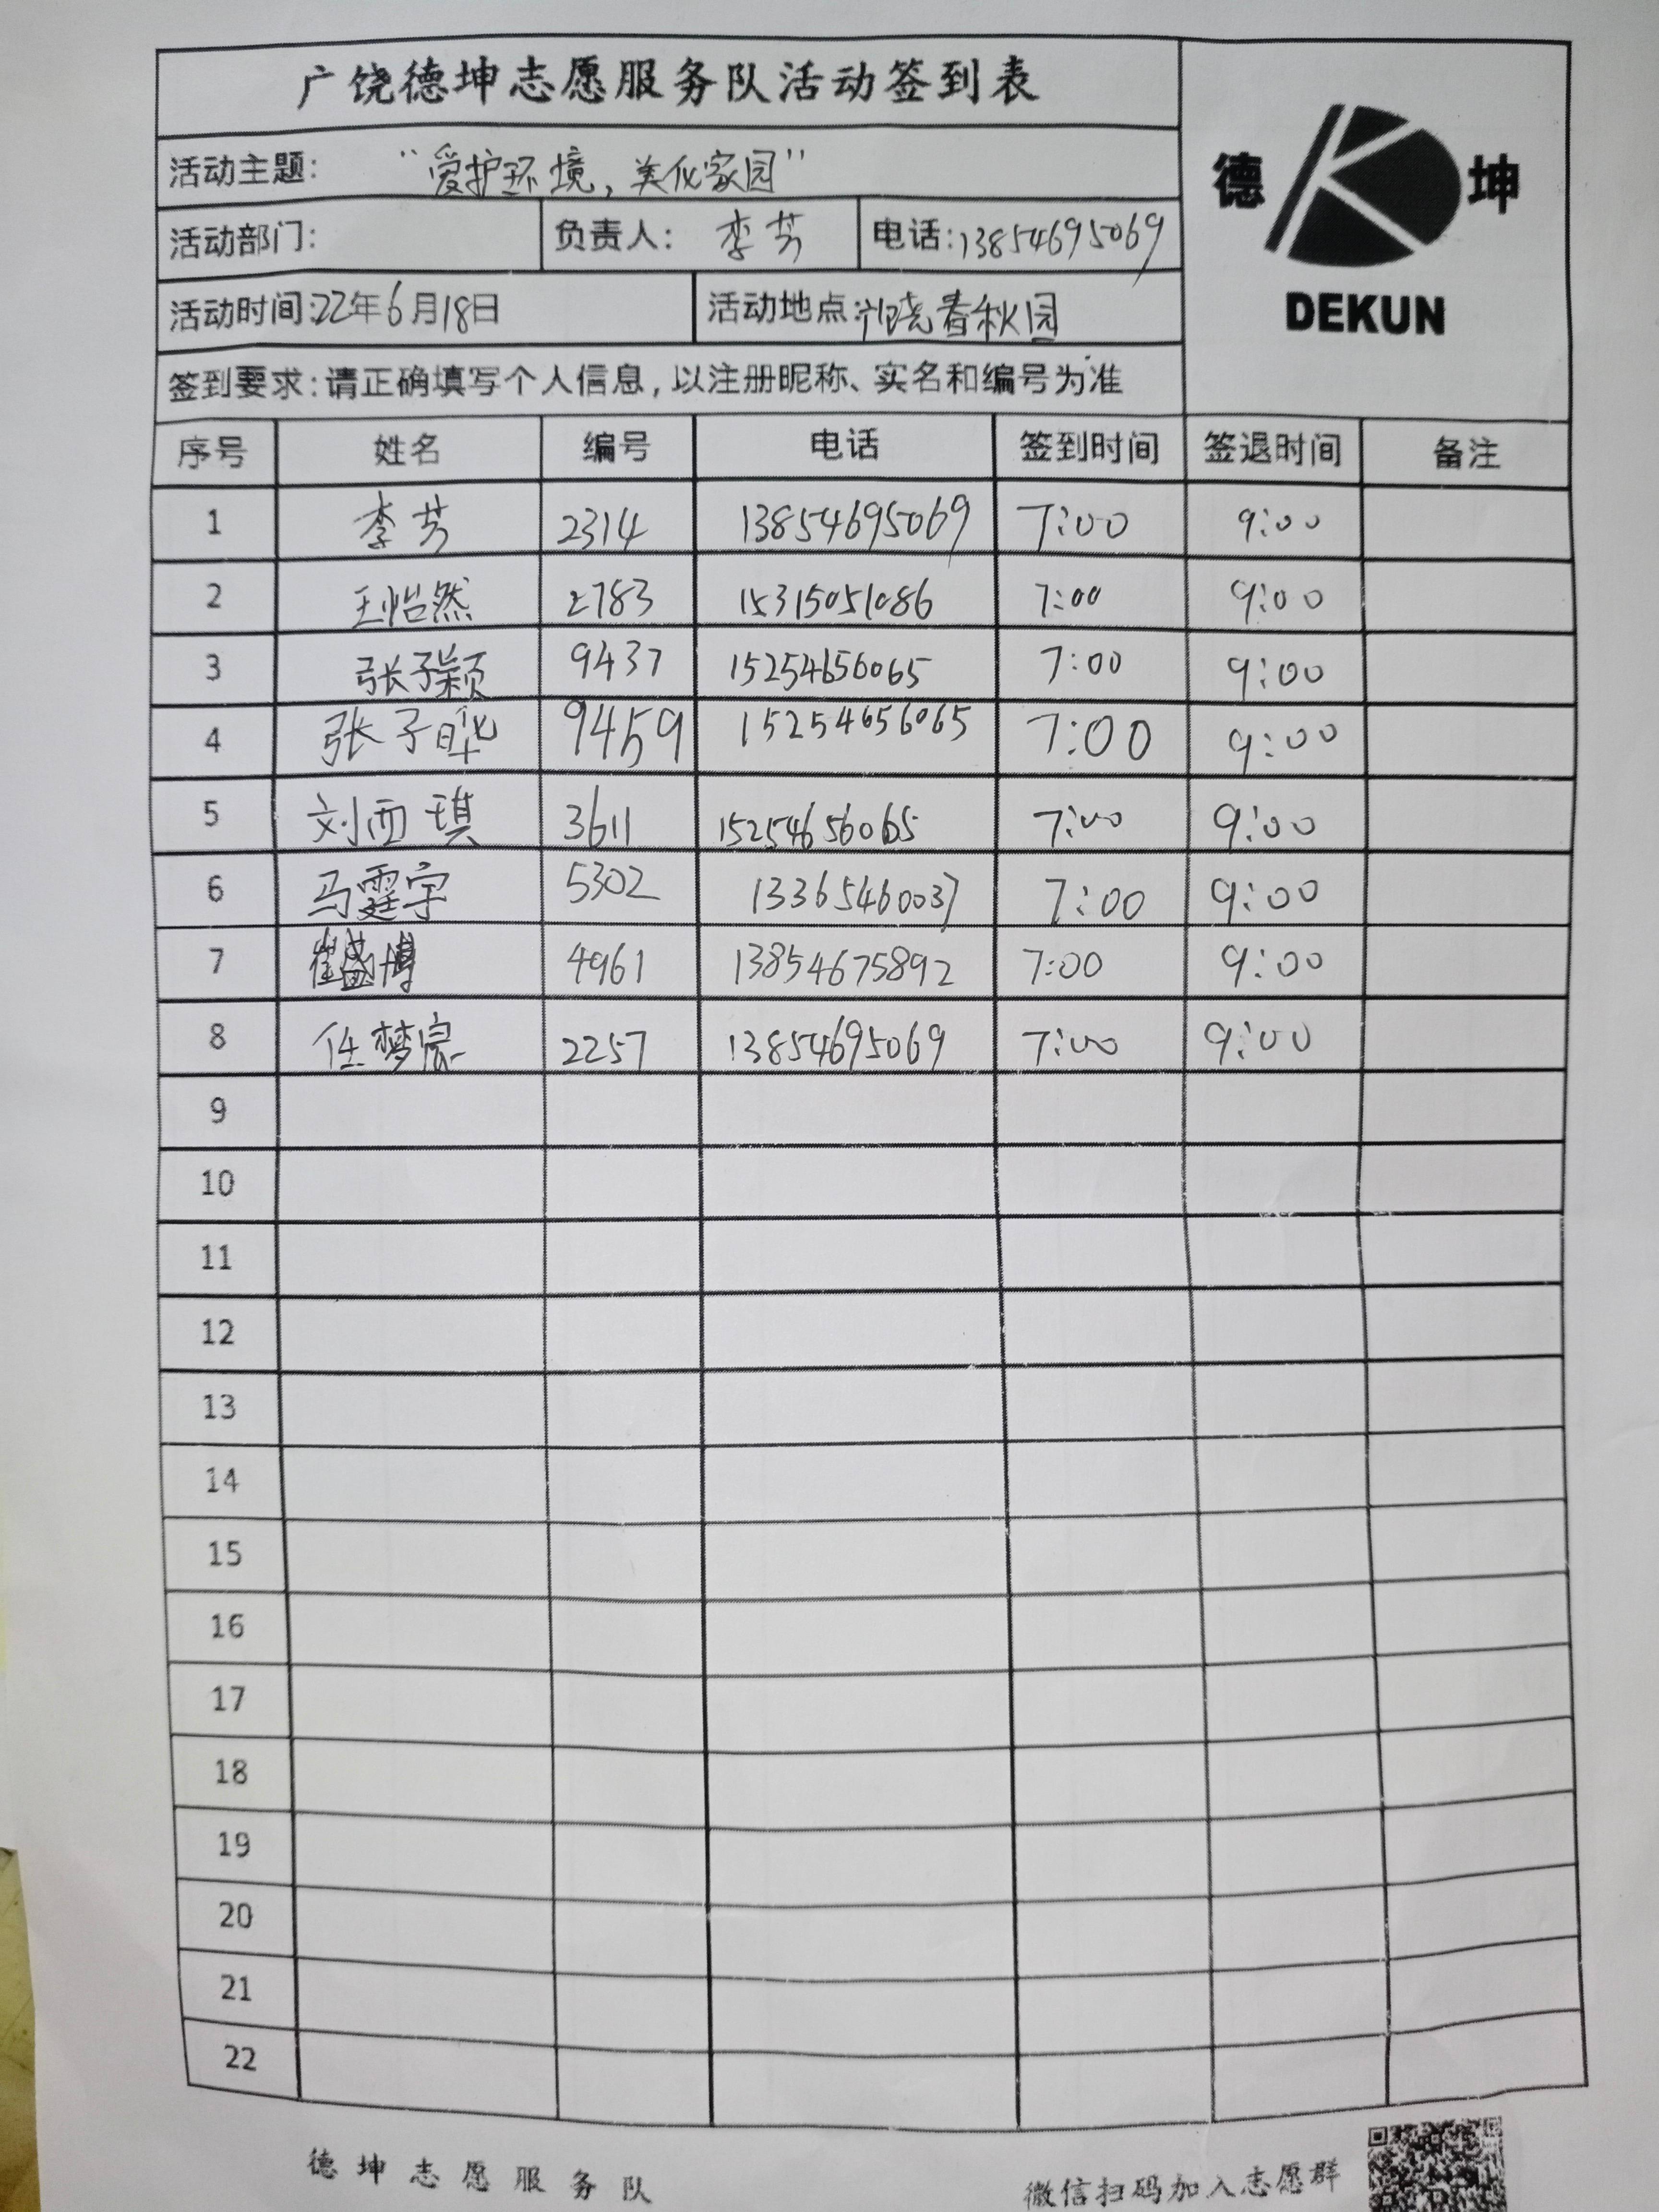 广饶德坤志愿服务队活动签到表
德 坤
DEKUN
活动主题: “爱护环境,美化家园”
活动部门: 负责人: 李芳 电话:13854695069
活动时间:22年6月18日 活动地点: 春秋园
签到要求:请正确填写个人信息,以注册昵称、实名和编号为准
序号 姓名 编号 电话 签到时间 签退时间 备注
1 李芳 2314 13854695069 7:00 9:00
2 王怡然 2783 15315051086 7:00 9:00
3 张子颖 9437 15254656065 7:00 9:00
4 张子晔 9459 15254656065 7:00 9:00
5 刘雨琪 3611 15254656065 7:00 9:00
6 马霆宇 5302 13365460037 7:00 9:00
7 崔盛博 4961 13854675892 7:00 9:00
8 任梦宸 2257 13854695069 7:00 9:00
9
10
11
12
13
14
15
16
17
18
19
20
21
22
德坤志愿服务队 微信扫码加入志愿群